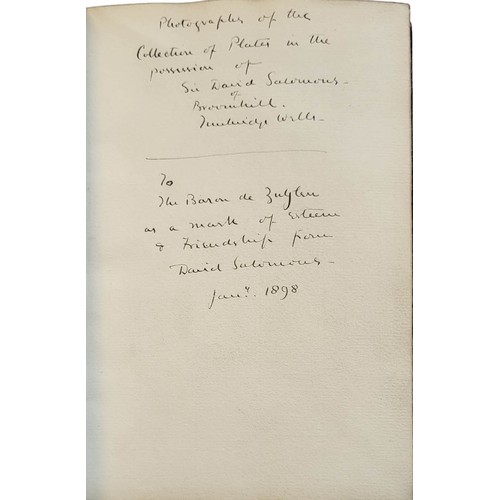 Photographs of the
Collection of Plates in the
possession of
Sir David Salomons -
of
Broomhill.
Tunbridge Wells -
To
The Baron de Zuylen
as a mark of Esteem
& Friendship from
David Salomons -
Jany. 1898